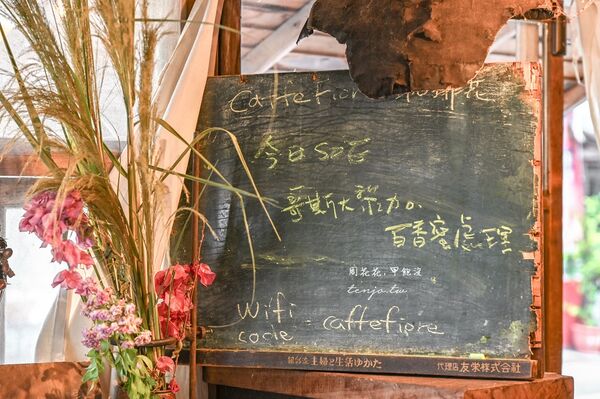 Caffefiore 花
今日SOE
哥斯大黎加
百香蜜處理
周花花,甲飽沒
tenjo.tw
Wifi
code : caffefiore
主婦と生活ゆかた
代理店 友栄株式会社